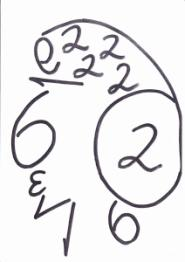 e 2 2
2 2
6 2
ε 6